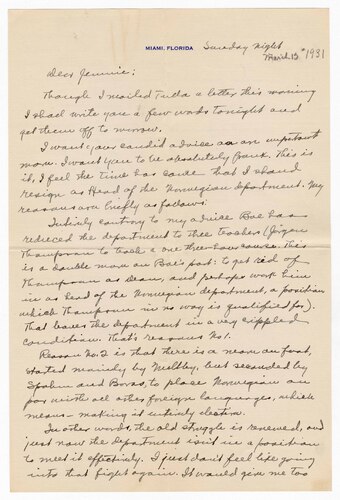 MIAMI, FLORIDA
Sunday Night
March 15 1931
Dear Jennie:
Though I mailed Tuda a letter this morning
I shall write you a few words tonight and
get them off to morrow.
I want your candid advise on an important
move. I want you to be absolutely frank. This is
it, I feel the time has come that I should
resign as Head of the Norwegian department. My
reasons are briefly as follows:
Entirely contrary to my advise Boe has
reduced the department to three teachers (Jörgen
Thompson to teach a one three-hour course. This
is a double move on Boe's part: to get rid of
Thompson as Dean, and perhaps work him
in as head of the Norwegian department, a position
which Thompson in no way is qualified for).
That leaves the department in a very crippled
condition. That's reason No 1.
Reason No. 2 is that there is a move on foot,
started mainly by Mellby, but seconded by
Spohn and Boraas, to place Norwegian on
par with all other foreign languages, which
means - making it entirely elective.
In other words the old struggle is renewed, and
just now the department isn't in a position
to meet it effectively. I just don't feel like going
into that fight again. It would give me too